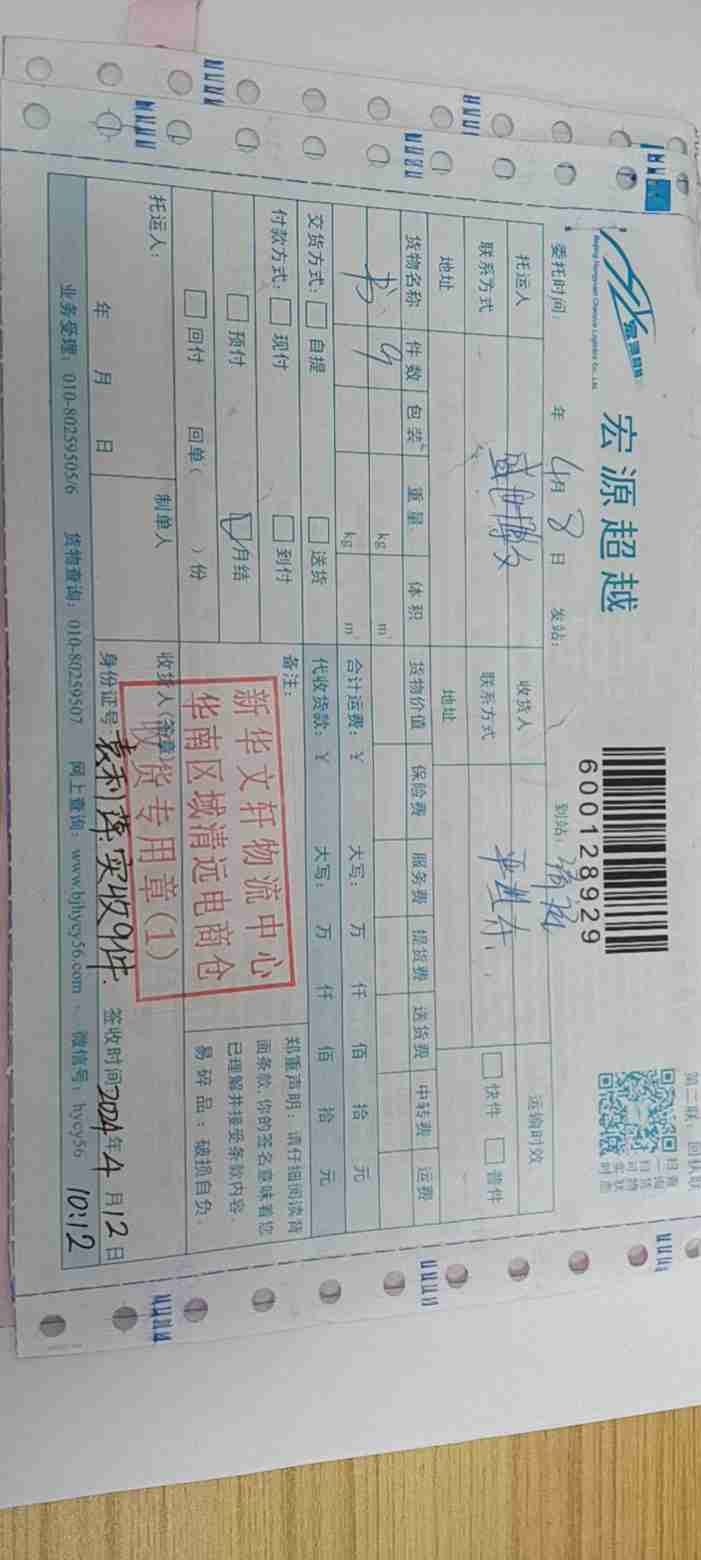 宏源超越
Beijing Hongyuan Chaoyue Logistics Co., Ltd.
600128929
第二联：回执联
委托时间： 年 4月 8日 发站： 到站：
托运人 收货人 运输时效
联系方式 盛世博文 联系方式 快件 普件
地址 地址
货物名称 件数 包装 重量 体积 货物价值 保险费 服务费 提货费 送货费 中转费 运费
书 9 kg m³
kg m³ 合计运费：￥ 大写： 万 仟 佰 拾 元
交货方式： 自提 送货 代收货款：￥ 大写： 万 仟 佰 拾 元
付款方式： 现付 到付 备注：
预付 月结
回付 回单( )份
郑重声明：请仔细阅读背
面条款,你的签名意味着您
已理解并接受条款内容.
易碎品：破损自负.
新华文轩物流中心
华南区域清远电商仓
收货专用章(1)
托运人： 制单人 收货人(签章)
年 月 日 身份证号 袁利萍实收9件. 签收时间2024年4月12日
10:12
业务受理：010-80259505/6 货物查询：010-80259507 网上查询：www.bjhycy56.com 微信号：hycy56